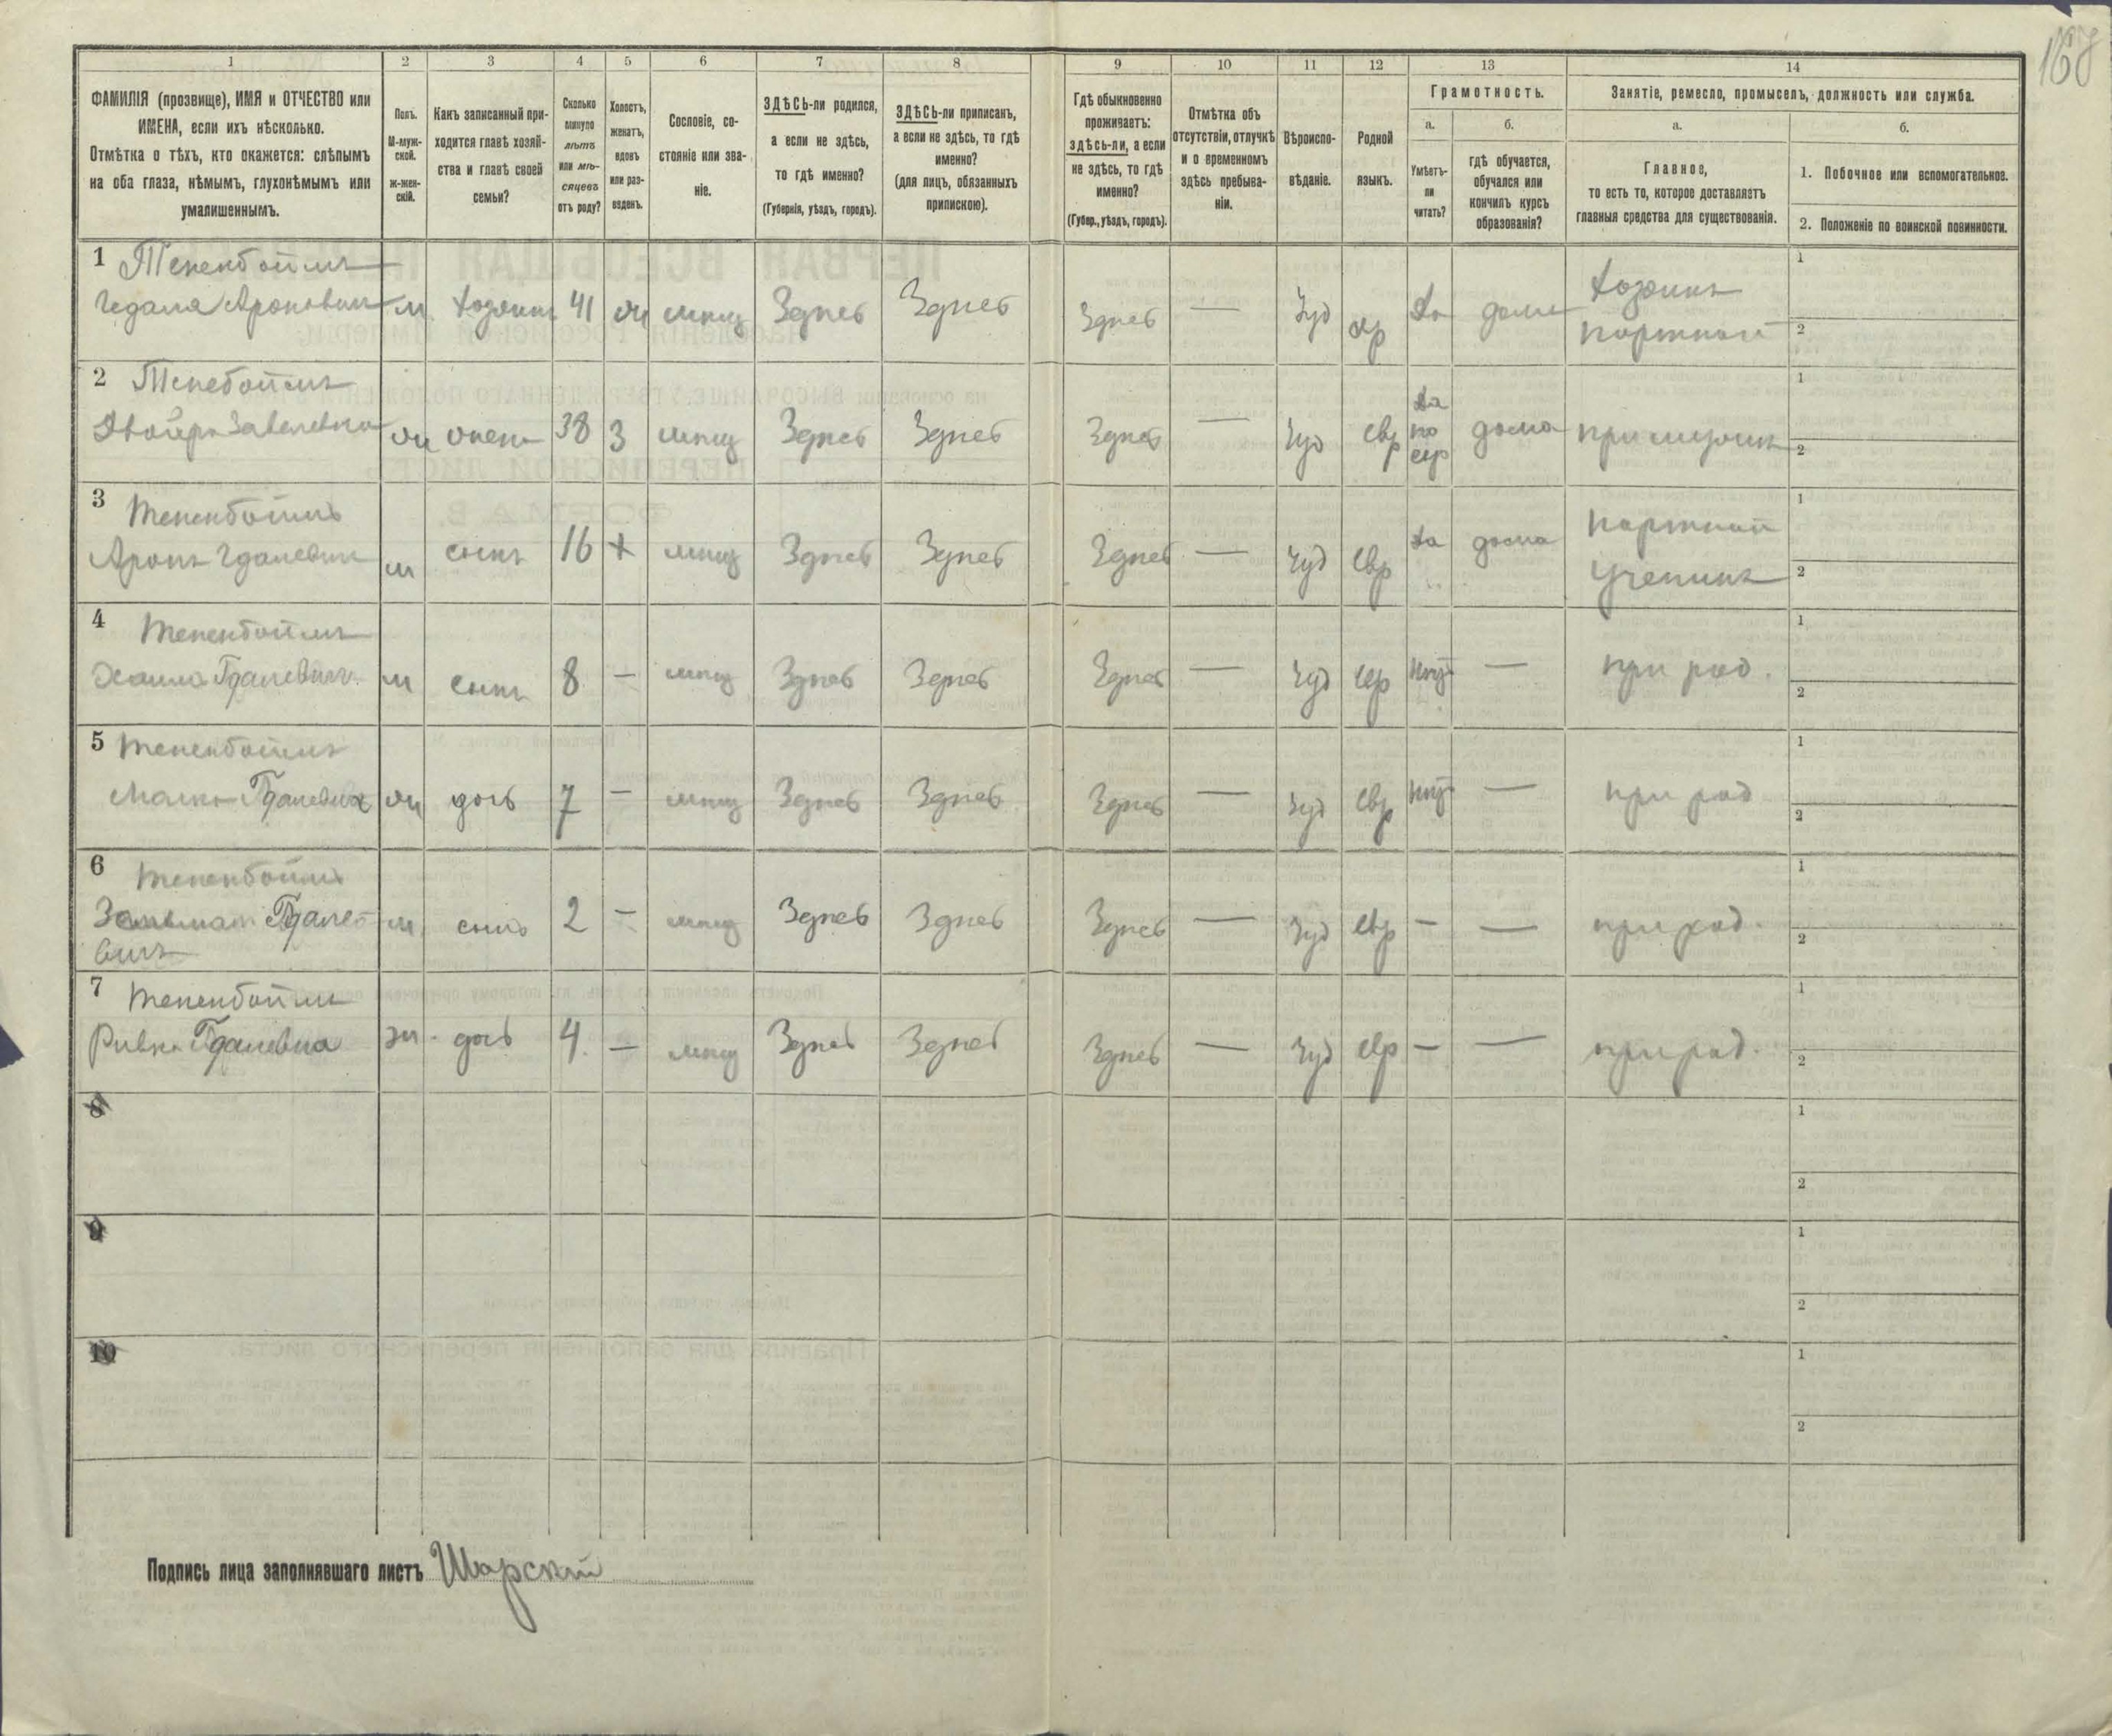 168
1 2 3 4 5 6 7 8 9 10 11 12 13 14
ФАМИЛІЯ (прозвище), ИМЯ и ОТЧЕСТВО или
ИМЕНА, если ихъ нѣсколько.
Отмѣтка о тѣхъ, кто окажется: слѣпымъ
на оба глаза, нѣмымъ, глухонѣмымъ или
умалишеннымъ.
Полъ.
М-муж-
ской.
ж-жен-
скій.
Какъ записанный при-
ходится главѣ хозяй-
ства и главѣ своей
семьи?
Сколько
минуло
лѣтъ
или мѣ-
сяцевъ
отъ роду?
Холостъ,
женатъ,
вдовъ
или раз-
веденъ.
Сословіе, со-
стояніе или зва-
ніе.
ЗДѢСЬ-ли родился,
а если не здѣсь,
то гдѣ именно?
(Губернія, уѣздъ, городъ).
ЗДѢСЬ-ли приписанъ,
а если не здѣсь, то гдѣ
именно?
(для лицъ, обязанныхъ
припискою).
Гдѣ обыкновенно
проживаетъ:
здѣсь-ли, а если
не здѣсь, то гдѣ
именно?
(Губер., уѣздъ, городъ).
Отмѣтка объ
отсутствіи, отлучкѣ
и о временномъ
здѣсь пребыва-
ніи.
Вѣроиспо-
вѣданіе.
Родной
языкъ.
Грамотность.
а.
Умѣетъ-
ли
читать?
б.
гдѣ обучается,
обучался или
кончилъ курсъ
образованія?
Занятіе, ремесло, промыселъ, должность или служба.
а.
Главное,
то есть то, которое доставляетъ
главныя средства для существованія.
б.
1. Побочное или вспомогательное.
2. Положеніе по воинской повинности.
1 Тененбоймъ
Гедаля Ароновичъ м хозяинъ 41 ж мѣщ Здѣсь Здѣсь Здѣсь — Іуд евр да дома хозяинъ
портной
1
2
2 Тенебоймъ
Двойра Завелевна ж жена 38 З мѣщ Здѣсь Здѣсь Здѣсь — Іуд евр да
по
евр дома при мужѣ
1
2
3 Тененбоймъ
Аронъ Гдалевич м сынъ 16 х мѣщ Здѣсь Здѣсь Здѣсь — Іуд евр да дома портной
ученикъ
1
2
4 Тененбоймъ
Гдалевичъ м сынъ 8 — мѣщ Здѣсь Здѣсь Здѣсь — Іуд евр нѣт — при род.
1
2
5 Тененбоймъ
Малка Гдалевна ж дочь 7 — мѣщ Здѣсь Здѣсь Здѣсь — Іуд евр нѣт — при род
1
2
6 Тененбоймъ
Гдале-
вичъ м сынъ 2 — мѣщ Здѣсь Здѣсь Здѣсь — Іуд евр — — при род.
1
2
7 Тененбойм
Ривка Гдалевна ж дочь 4 — мѣщ Здѣсь Здѣсь Здѣсь — Іуд евр — — при род.
1
2
8
1
2
9
1
2
10
1
2
Подпись лица заполнявшаго листъ Шарский